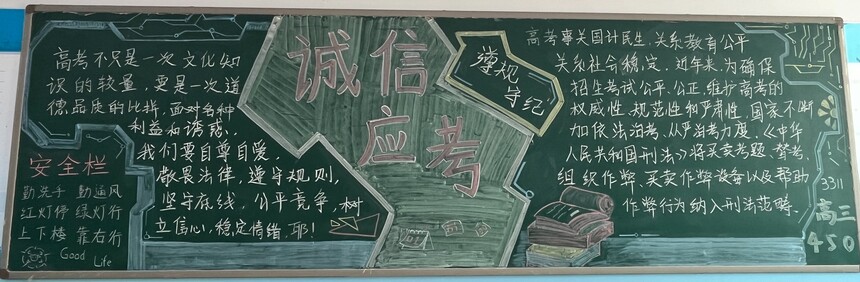 高考不只是一次文化知
识的较量,更是一次道
德品质的比拼,面对各种
利益和诱惑,
我们要自尊自爱,
敬畏法律,遵守规则,
坚守底线,公平竞争,树
立信心,稳定情绪,耶!
安全栏
勤洗手 勤通风
红灯停 绿灯行
上下楼 靠右行
Good
Life
诚信
应考
遵规
守纪
高考事关国计民生,关系教育公平
关系社会稳定,近年来,为确保
招生考试公平、公正,维护高考的
权威性、规范性和严肃性,国家不断
加依法治考、从严治考力度,《中华
人民共和国刑法》将买卖考题、替考、
组织作弊、买卖作弊设备以及帮助
作弊行为纳入刑法范畴.
3311
高三
450